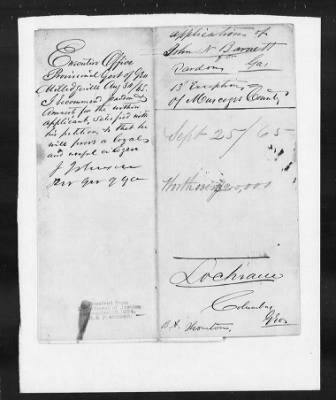 Executive Office
Provisional Govt of Geo
Milledgeville Aug 30/65.
I recommend pardon
for the within
applicant, satisfied with
his petition & that he
will prove a loyal
and useful citizen
J Johnson
Prov Gov of Ga
application of
John N Barnett
Pardon Ga
13th Exception
of Muscogee County
Sept 25/65
Worth over 20,000
Lochrane
Columbus
Geo